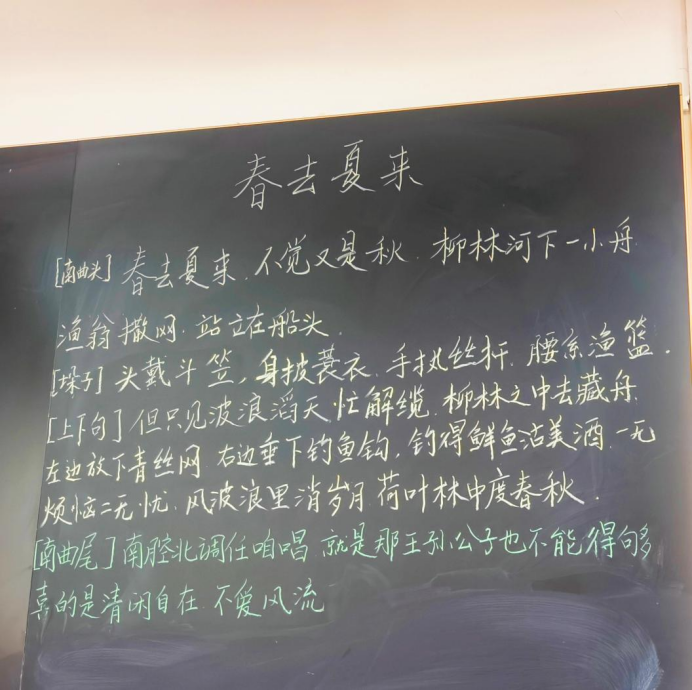 春去夏来
[南曲头] 春去夏来,不觉又是秋,柳林河下一小舟
渔翁撒网,站立在船头.
[垛子] 头戴斗笠,身披蓑衣,手执丝杆,腰系渔篮.
[上下句] 但只见波浪滔天忙解缆,柳林之中去藏舟
左边放下青丝网 右边垂下钓鱼钩,钓得鲜鱼沽美酒,一无
烦恼二无忧,风波浪里消岁月 荷叶林中度春秋.
[南曲尾] 南腔北调任咱唱 就是那王孙公子也不能得句多
喜的是清闲自在,不爱风流